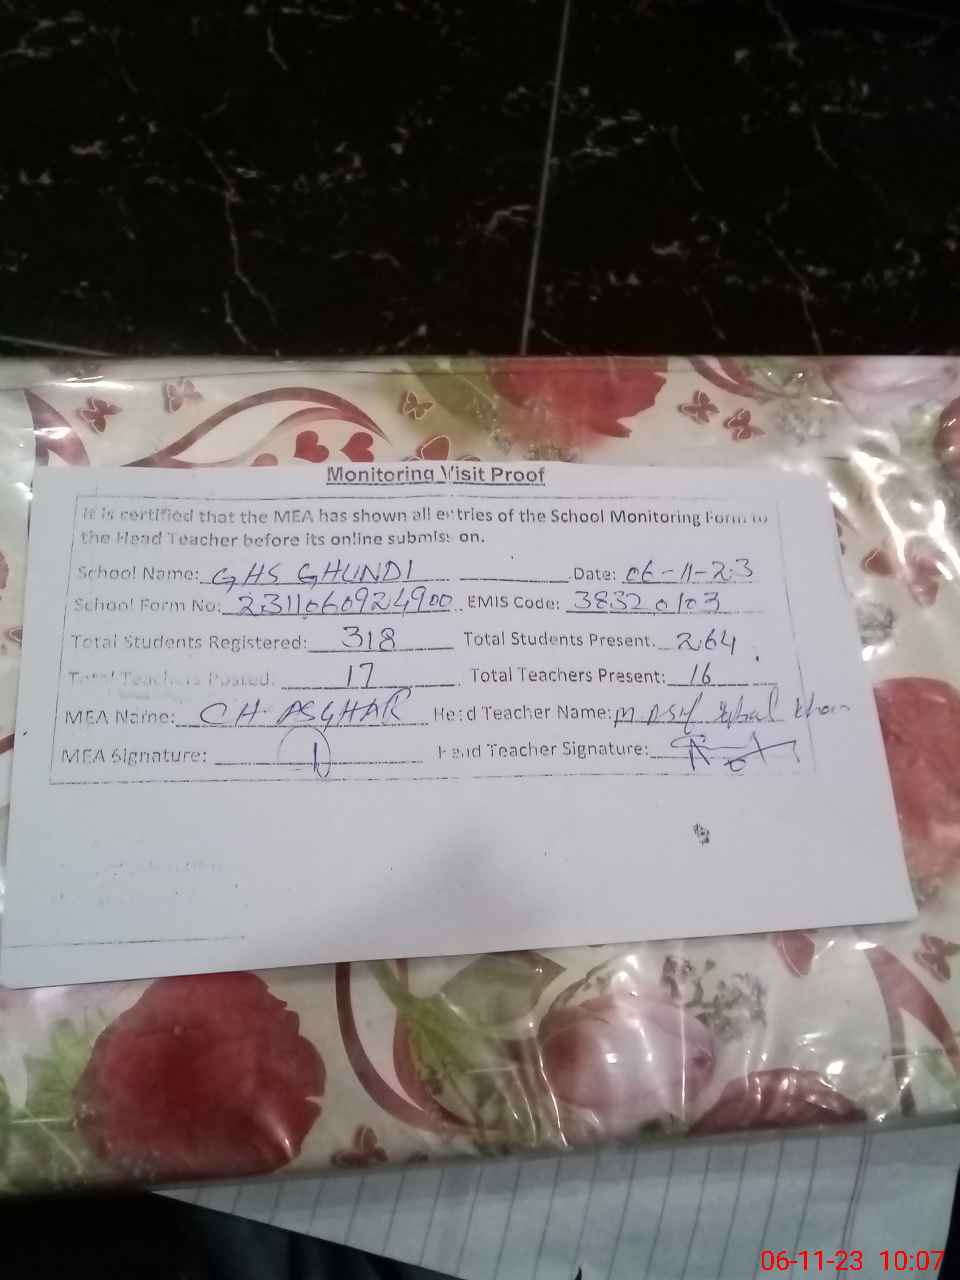 Monitoring Visit Proof
It is certified that the MEA has shown all entries of the School Monitoring Form to
the Head Teacher before its online submission.
School Name: GHS GHUNDI Date: 06-11-23
School Form No: 2311060924900 EMIS Code: 38320103
Total Students Registered: 318 Total Students Present. 264
Total Teachers Posted: 17 Total Teachers Present: 16
MEA Name: CH. ASGHAR Head Teacher Name: Iqbal Khan
MEA Signature: Head Teacher Signature:
06-11-23 10:07